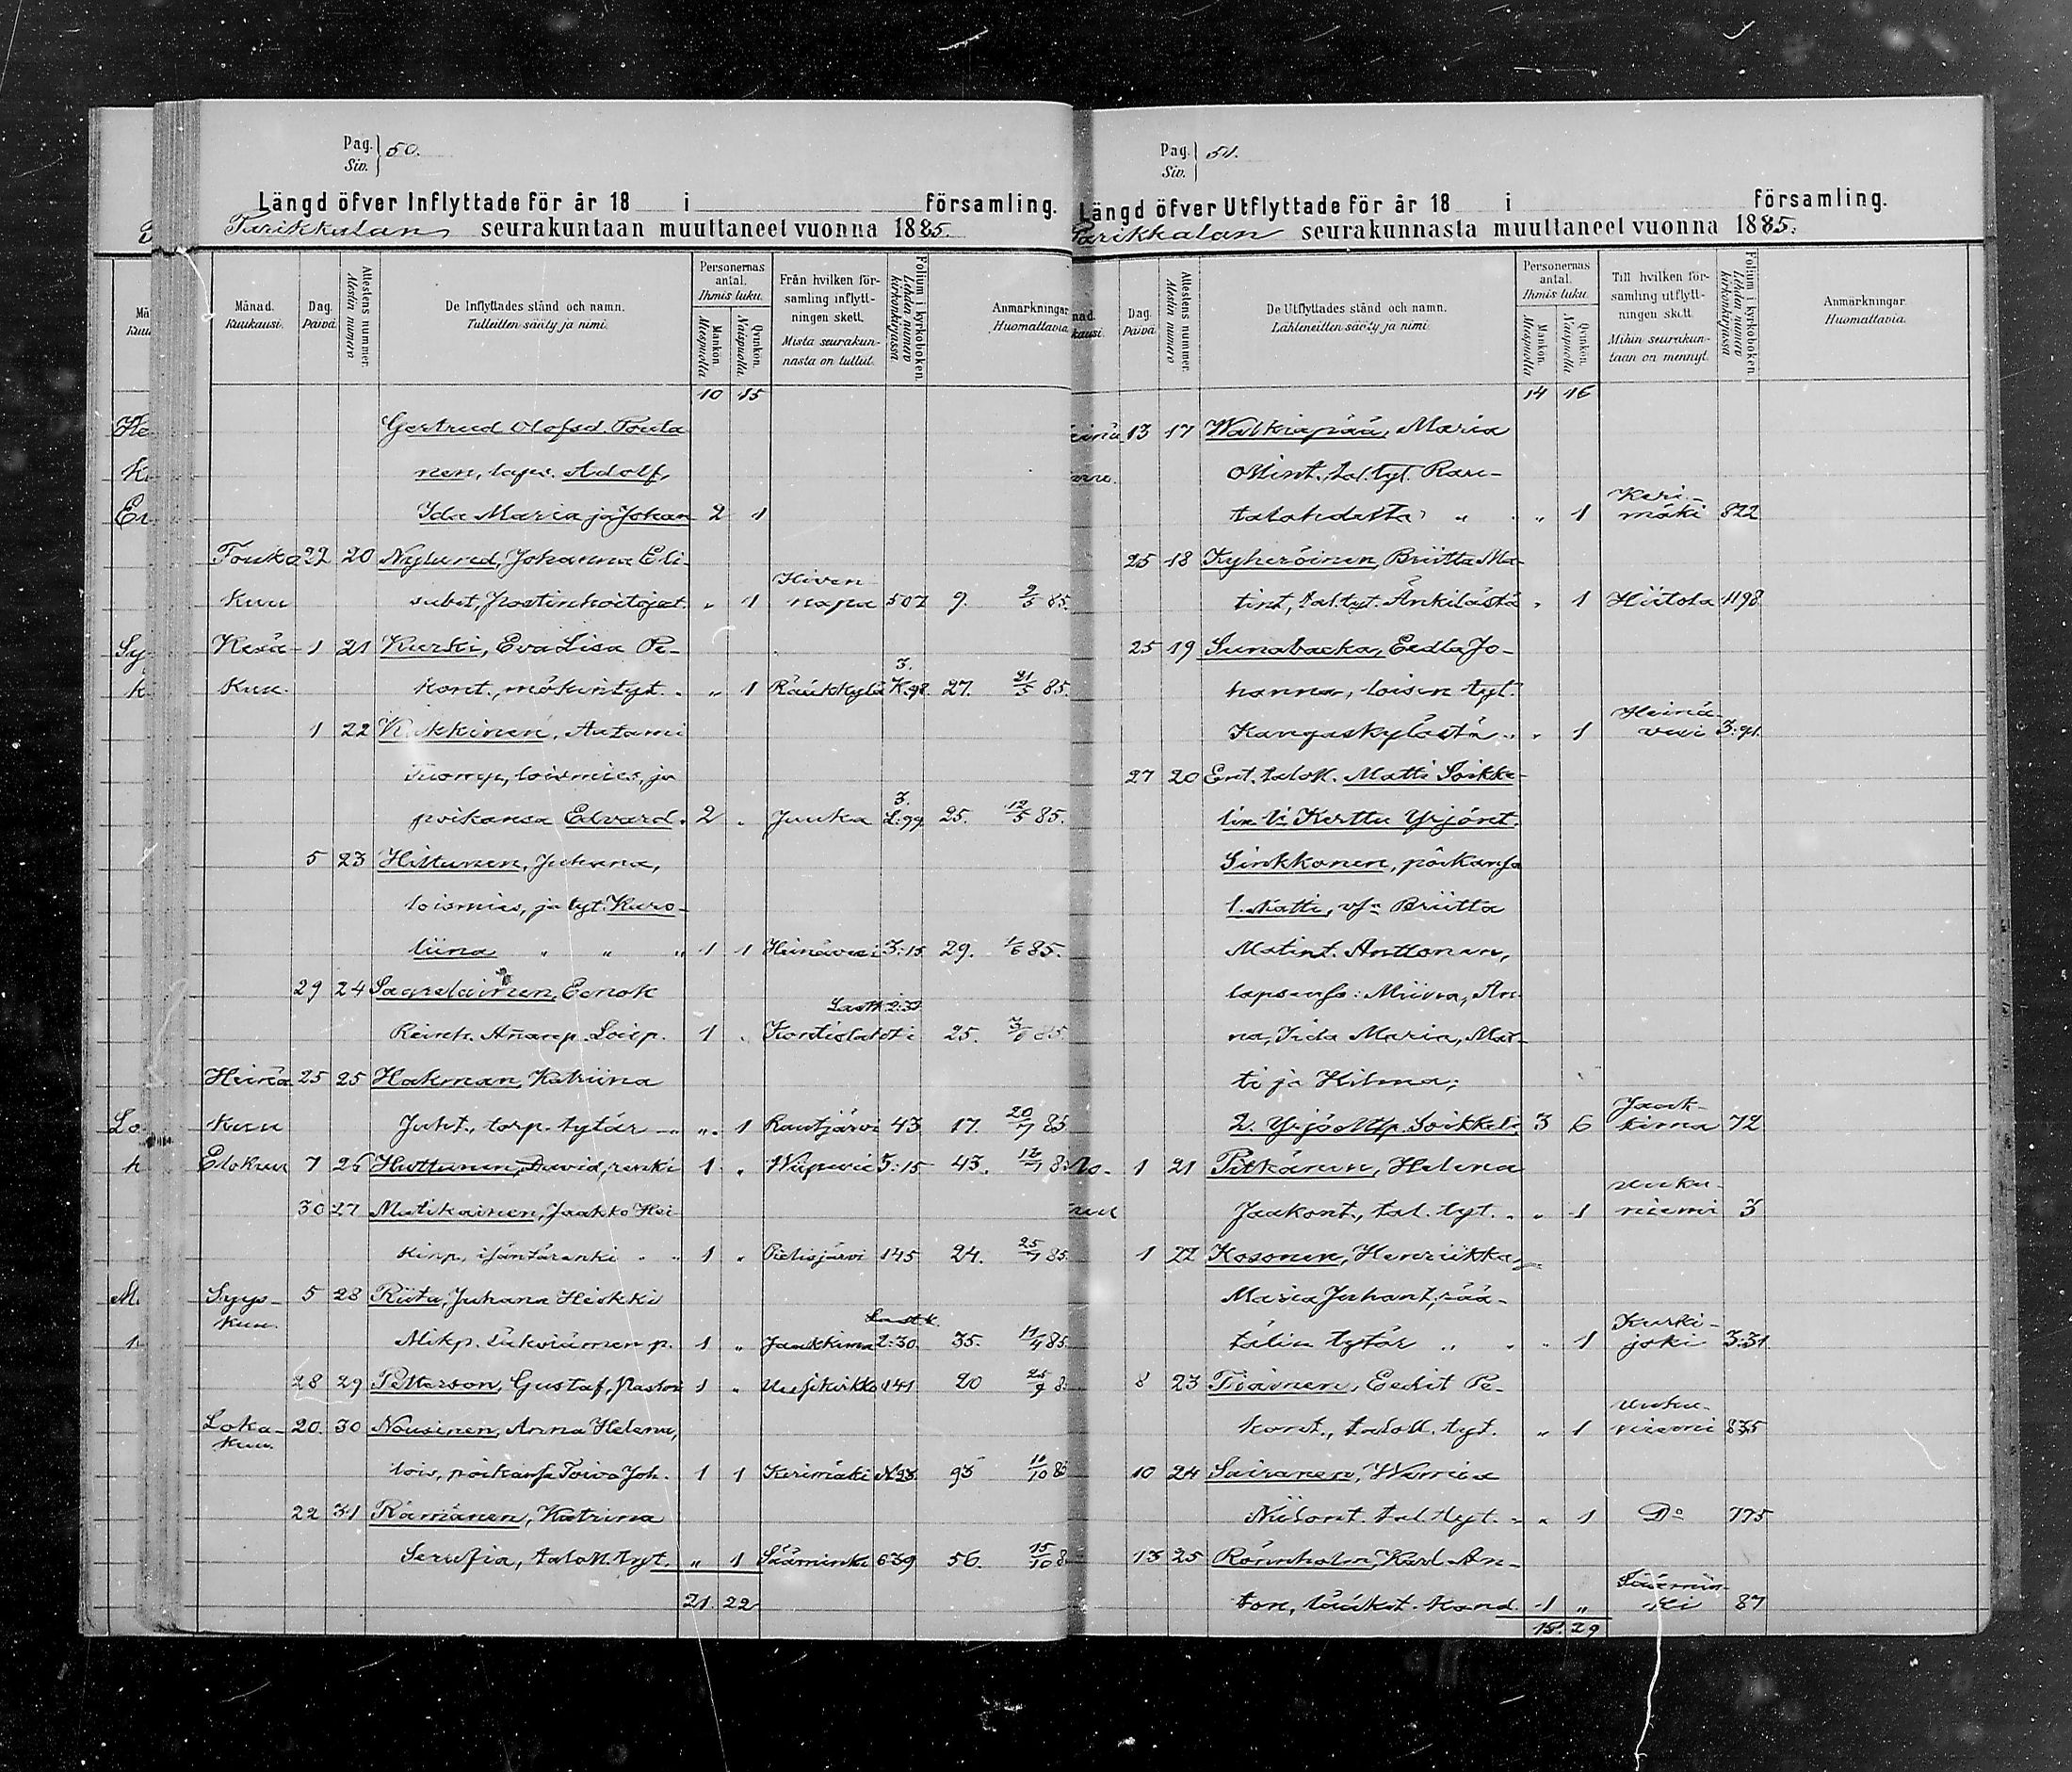 Pag. Siv. 50.
Längd öfver Inflyttade för år 18 i församling.
Parikkalan seurakuntaan muuttaneet vuonna 1885.
Månad. Kuukausi.
Dag. Päivä.
Attestens nummer. Atestin numero
De Inflyttades stånd och namn. Tulleitten sääty ja nimi.
Personernas antal. Ihmis luku.
Mankön. Miespuolia
Qvinkön. Naispuolia
Från hvilken församling inflyttningen skett. Mista seurakunnasta on tullut.
Folium i kyrkoboken. Lehden numero kirkonkirjassa
Anmärkningar Huomattavia
10 15
Gertrud Olofsd. Pouta
nen, laps. Adolf,
Ida Maria ja Johan 2 1
Touko 22 20 Nylund, Johanna Eli-
Hiven
kuu sabet, Postinhoitajat. „ 1 napa 507 9. 2/5 85.
Kesä- 1 21 Kurski, Eva Lisa Pe-
3.
kuu. kont., mökintyt. „ 1 Rääkkylä K.98. 27. 21/5 85.
1 22 Kukkinen, Antami
Tuomp, loismies, ja
3.
poikansa Edvard. 2 „ Juuka L:99 25. 12/5 85.
5 23 Hiltunen, Juhana,
loismies, ja tyt. Karo-
liina „ „ „ 1 1 Heinävesi 3:15 29. 1/6 85.
29 24 Sagrelainen, Eenok
Lastk 2:32
Reinh. Anarp. Loisp. 1 „ Kontiolahti 25. 3/6 85
Heinä 25 25 Hakman, Katriina
kuu Juht., torp. tytär „ 1 Rautjärvi 43 17. 20/7 85
Elokuu 7 26 Huttunen, David, renki 1 „ Wiipuri 5:15 43. 12/7 8
30 27 Matikainen, Jaakko Hei
kinp, isäntärenki „ „ 1 „ Pielisjärvi 145 24. 25/7 85.
Syys- 5 28 Riita, Juhana Heikki
kuu. Lastk.
Mikp. itkviämen p. 1 „ Jaakkima 2:30 35. 11/4 85.
28 29 Petterson, Gustaf, Pastori 1 „ Uusikirkko 141 20 25/9 8
Loka- 20. 30 Nousinen, Anna Helena,
kuu.
lois, poikansa Toivo Joh. 1 1 Kerimäki N.23. 93 10/10 85
22 31 Rämänen, Katrina
Serafia, taloll. tyt. „ 1 Sääminki 639 56. 15/10 8
21. 22
Pag. Siv. 51.
Längd öfver Utflyttade för år 18 i församling.
Parikkalan seurakunnasta muuttaneet vuonna 1885.
Dag. Päivä.
Attestens nummer. Atestin numero
De Utflyttades stånd och namn. Lähteneitten sääty ja nimi.
Personernas antal. Ihmis luku.
Mankön. Miespuolia
Qvinkön. Naispuolia
Till hvilken församling utflyttningen skett. Mihin seurakuntaan on mennyt.
Folium i kyrkoboken. Lehden numero kirkonkirjassa
Anmärkningar. Huomattavia.
14 16
einä 13 17 Walkiapää, Maria
Ollint., tal. tyt. Rau-
Keri-
talahdesta „ „ 1 mäki 822
25 18 Kyheröinen, Briitta Ma-
tint, tal. tyt. Änkilästä „ 1 Hiitola 1198
25 19 Sunabacka, Eedla Jo-
hanna, loisen tyt.
Heinä-
Kangaskylästä „ „ 1 vesi 3:91.
27 20 Ent. talok. Matti Soikke-
lin V:n Kerttu Yrjönt.
Sinkkonen, poikansa
1. Matti, vsa Briitta
Matint. Anttonen,
lapsensa: Miina, An-
na, Iida Maria, Mat-
ti ja Hilma;
Jaak-
2. Yrjö Mtp. Soikkeli 3 6 kima 72
1 21 Pitkänen, Helena
Uuku-
Jaakont., tal. tyt. „ „ 1 niemi 3
1 22 Kosonen, Henriikka,
Maria Juhant, rää-
Kurki-
tälin tytär „ „ 1 joki 3:31
8 23 Tiainen, Eedit Pe-
Uuku-
kont., taloll. tyt. „ 1 niemi 835
10 24 Sairanen, Warria
Niilont. tal. tyt. „ „ 1 Do 775
13 25 Rönnholm, Karl An-
Säämin-
ton, lääket. kand. 1 „ ki 87
18. 29